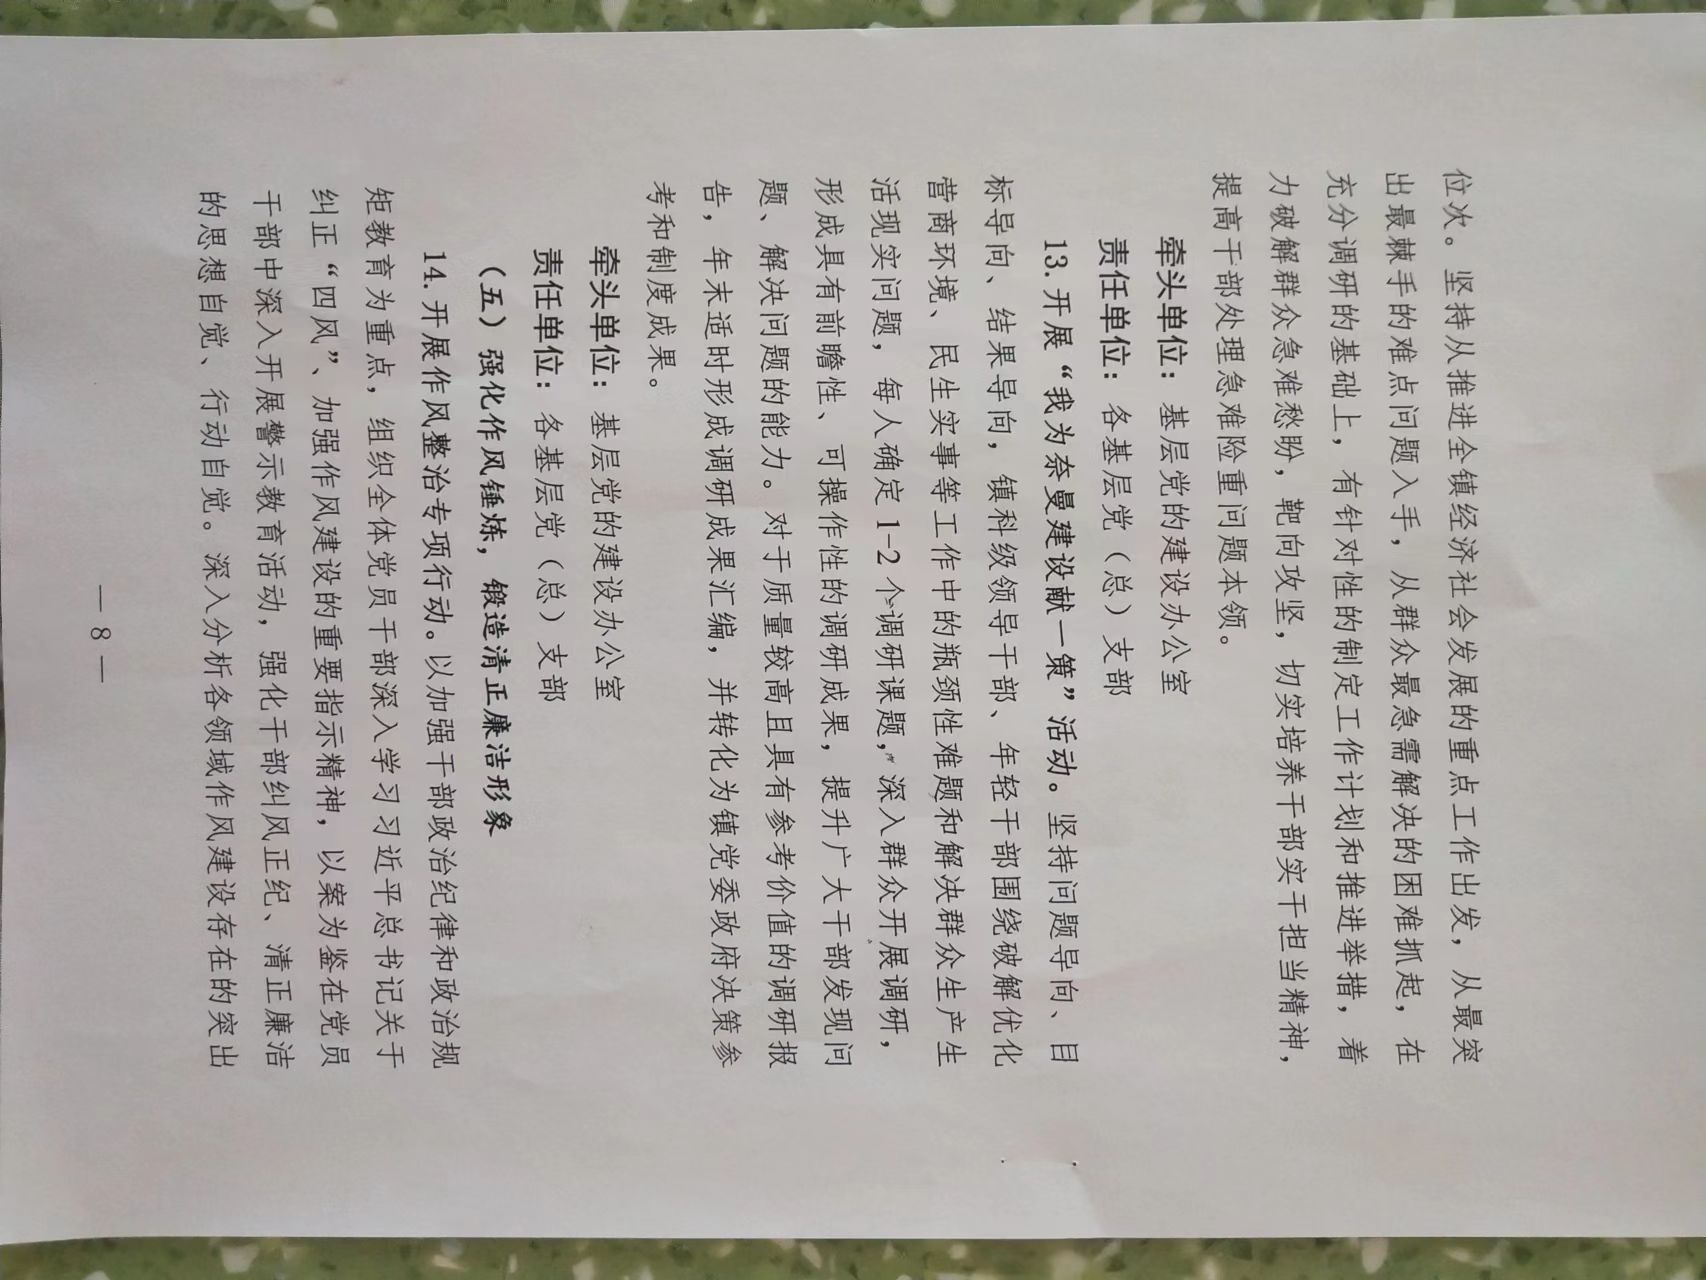 位次。坚持从推进全镇经济社会发展的重点工作出发，从最突
出最棘手的难点问题入手，从群众最急需解决的困难抓起，在
充分调研的基础上，有针对性的制定工作计划和推进举措，着
力破解群众急难愁盼，靶向攻坚，切实培养干部实干担当精神，
提高干部处理急难险重问题本领。
牵头单位：基层党的建设办公室
责任单位：各基层党（总）支部
13.开展“我为奈曼建设献一策”活动。坚持问题导向、目
标导向、结果导向，镇科级领导干部、年轻干部围绕破解优化
营商环境、民生实事等工作中的瓶颈性难题和解决群众生产生
活现实问题，每人确定1-2个调研课题，深入群众开展调研，
形成具有前瞻性、可操作性的调研成果，提升广大干部发现问
题、解决问题的能力。对于质量较高且具有参考价值的调研报
告，年末适时形成调研成果汇编，并转化为镇党委政府决策参
考和制度成果。
牵头单位：基层党的建设办公室
责任单位：各基层党（总）支部
（五）强化作风锤炼，锻造清正廉洁形象
14.开展作风整治专项行动。以加强干部政治纪律和政治规
矩教育为重点，组织全体党员干部深入学习习近平总书记关于
纠正“四风”、加强作风建设的重要指示精神，以案为鉴在党员
干部中深入开展警示教育活动，强化干部纠风正纪、清正廉洁
的思想自觉、行动自觉。深入分析各领域作风建设存在的突出
— 8 —